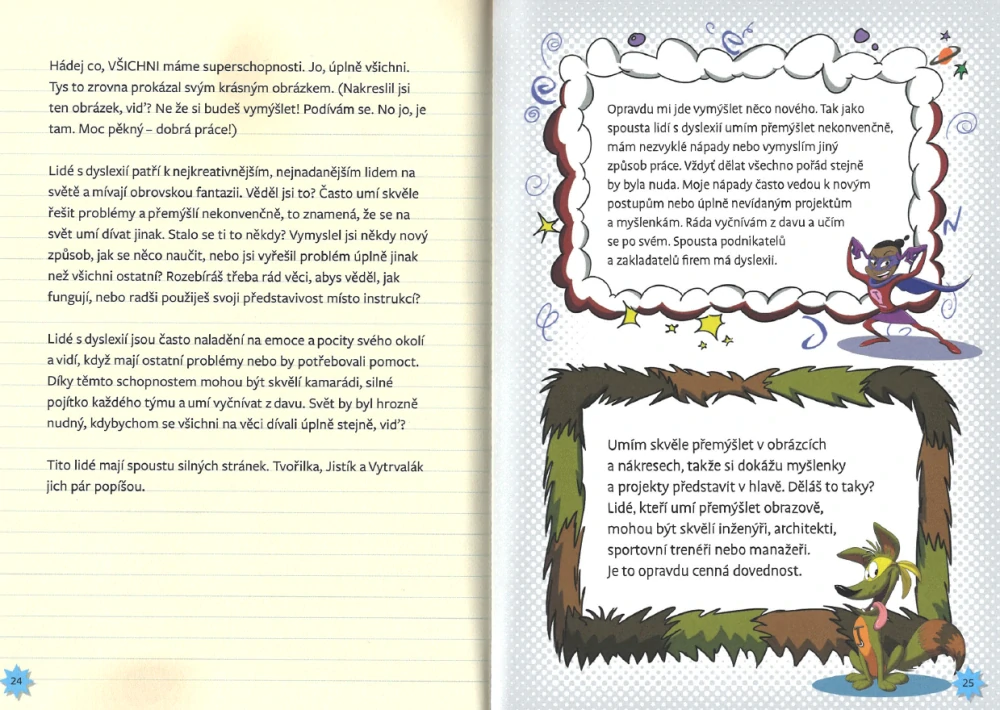 Hádej co, VŠICHNI máme superschopnosti. Jo, úplně všichni.
Tys to zrovna prokázal svým krásným obrázkem. (Nakreslil jsi
ten obrázek, viď? Ne že si budeš vymýšlet! Podívám se. No jo, je
tam. Moc pěkný – dobrá práce!)
Lidé s dyslexií patří k nejkreativnějším, nejnadanějším lidem na
světě a mívají obrovskou fantazii. Věděl jsi to? Často umí skvěle
řešit problémy a přemýšlí nekonvenčně, to znamená, že se na
svět umí dívat jinak. Stalo se ti to někdy? Vymyslel jsi někdy nový
způsob, jak se něco naučit, nebo jsi vyřešil problém úplně jinak
než všichni ostatní? Rozebíráš třeba rád věci, abys věděl, jak
fungují, nebo radši použiješ svoji představivost místo instrukcí?
Lidé s dyslexií jsou často naladění na emoce a pocity svého okolí
a vidí, když mají ostatní problémy nebo by potřebovali pomoct.
Díky těmto schopnostem mohou být skvělí kamarádi, silné
pojítko každého týmu a umí vyčnívat z davu. Svět by byl hrozně
nudný, kdybychom se všichni na věci dívali úplně stejně, viď?
Tito lidé mají spoustu silných stránek. Tvořilka, Jistík a Vytrvalák
jich pár popíšou.
24
Opravdu mi jde vymýšlet něco nového. Tak jako
spousta lidí s dyslexií umím přemýšlet nekonvenčně,
mám nezvyklé nápady nebo vymyslím jiný
způsob práce. Vždyť dělat všechno pořád stejně
by byla nuda. Moje nápady často vedou k novým
postupům nebo úplně nevídaným projektům
a myšlenkám. Ráda vyčnívám z davu a učím
se po svém. Spousta podnikatelů
a zakladatelů firem má dyslexii.
Umím skvěle přemýšlet v obrázcích
a nákresech, takže si dokážu myšlenky
a projekty představit v hlavě. Děláš to taky?
Lidé, kteří umí přemýšlet obrazově,
mohou být skvělí inženýři, architekti,
sportovní trenéři nebo manažeři.
Je to opravdu cenná dovednost.
25